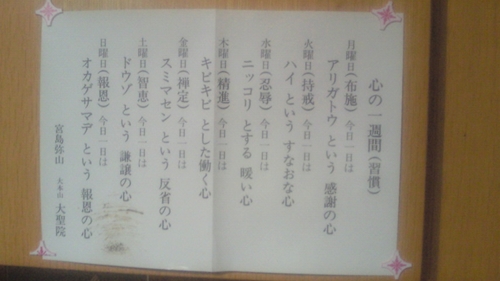 心の一週間(習慣)
月曜日(布施)今日一日は
アリガトウ という 感謝の心
火曜日(持戒)今日一日は
ハイ という すなおな心
水曜日(忍辱)今日一日は
ニッコリ とする 暖い心
木曜日(精進)今日一日は
キビキビ とした働く心
金曜日(禅定)今日一日は
スミマセン という 反省の心
土曜日(智恵)今日一日は
ドウゾ という 謙譲の心
日曜日(報恩)今日一日は
オカゲサマデ という 報恩の心
宮島弥山 大本山 大聖院